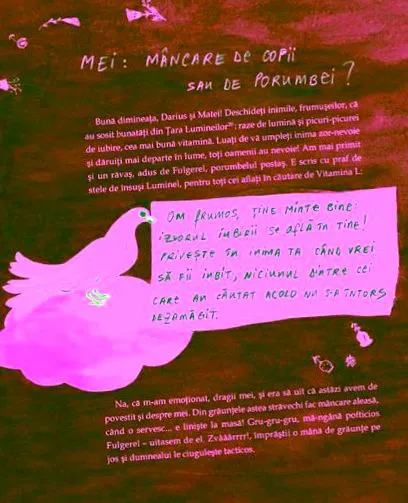 MEI: MÂNCARE DE COPII
SAU DE PORUMBEI?
Bună dimineața, Darius și Matei! Deschideți inimile, frumușeilor, că
au sosit bunătăți din Țara Lumineilor: raze de lumină și picuri-picurei
de iubire, cea mai bună vitamină. Luați de vă umpleți inima zor-nevoie
și dăruiți mai departe în lume, toți oamenii au nevoie! Am mai primit
și un răvaș, adus de Fulgerel, porumbelul poștaș. E scris cu praf de
stele de însuși Luminel, pentru toți cei aflați în căutare de Vitamina L:
OM FRUMOS, ȚINE MINTE BINE:
IZVORUL IUBIRII SE AFLĂ ÎN TINE!
PRIVEȘTE ÎN INIMA TA CÂND VREI
SĂ FII IUBIT, NICIUNUL DINTRE CEI
CARE AU CĂUTAT ACOLO NU S-A ÎNTORS
DEZAMĂGIT.
Na, că m-am emoționat, dragii mei, și era să uit că astăzi avem de
povestit și despre mei. Din grăunțele astea străvechi fac mâncare aleasă,
când o servesc... e liniște la masă! Gru-gru-gru, mă-ngână pofticios
Fulgerel – uitasem de el. Zvââârrr!, împrăștii o mână de grăunțe pe
jos și dumnealui le ciugulește tacticos.